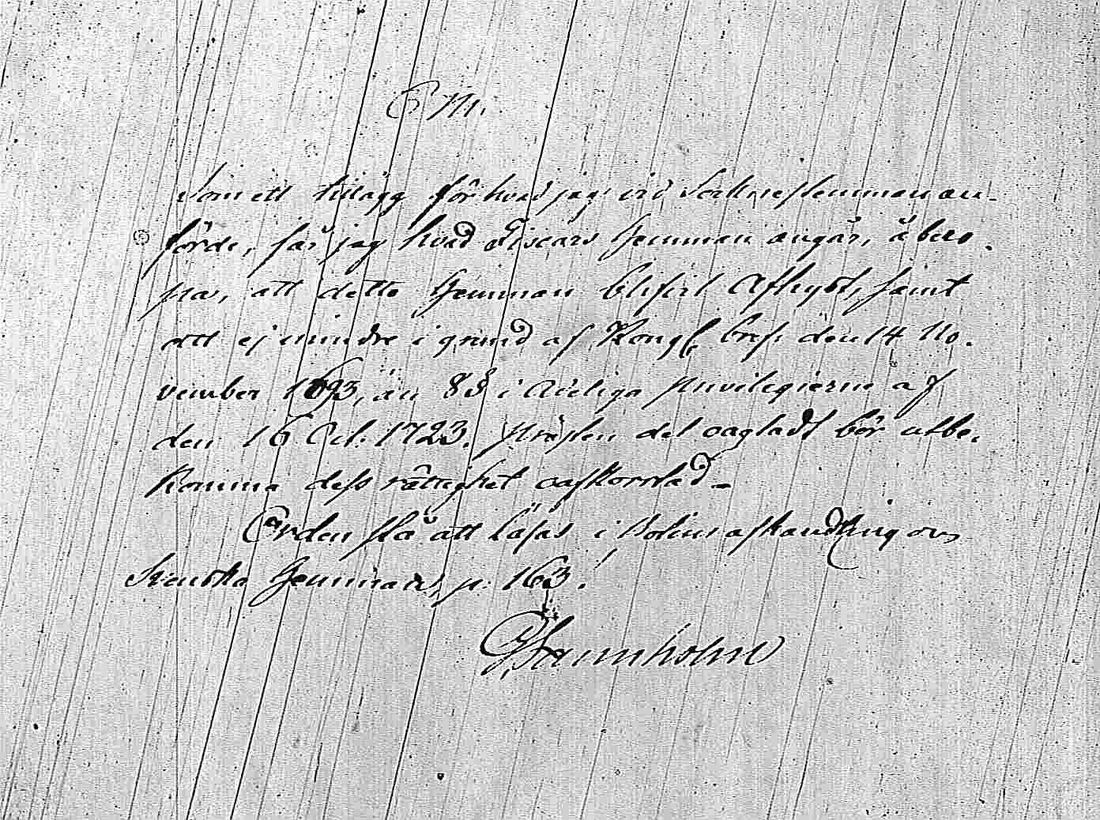 P. M.
Som ett tillägg för hvad jag vid Sockne stemman an-
förde, får jag hvad Fiscars Hemman angår, åbero-
pa, att detta Hemman blifvit Afhyst, samt
att ej mindre i grund af Kongl. bref den 14 No-
vember 1693, än 8 § i Adeliga privilegierne af
den 16 Oct: 1723. prästen det oagtadt bör utbe-
komma dess rättighet oafkortad -
Orden stå att läsas i Bolins afhandling om
Svenska Hemmans, p. 163.